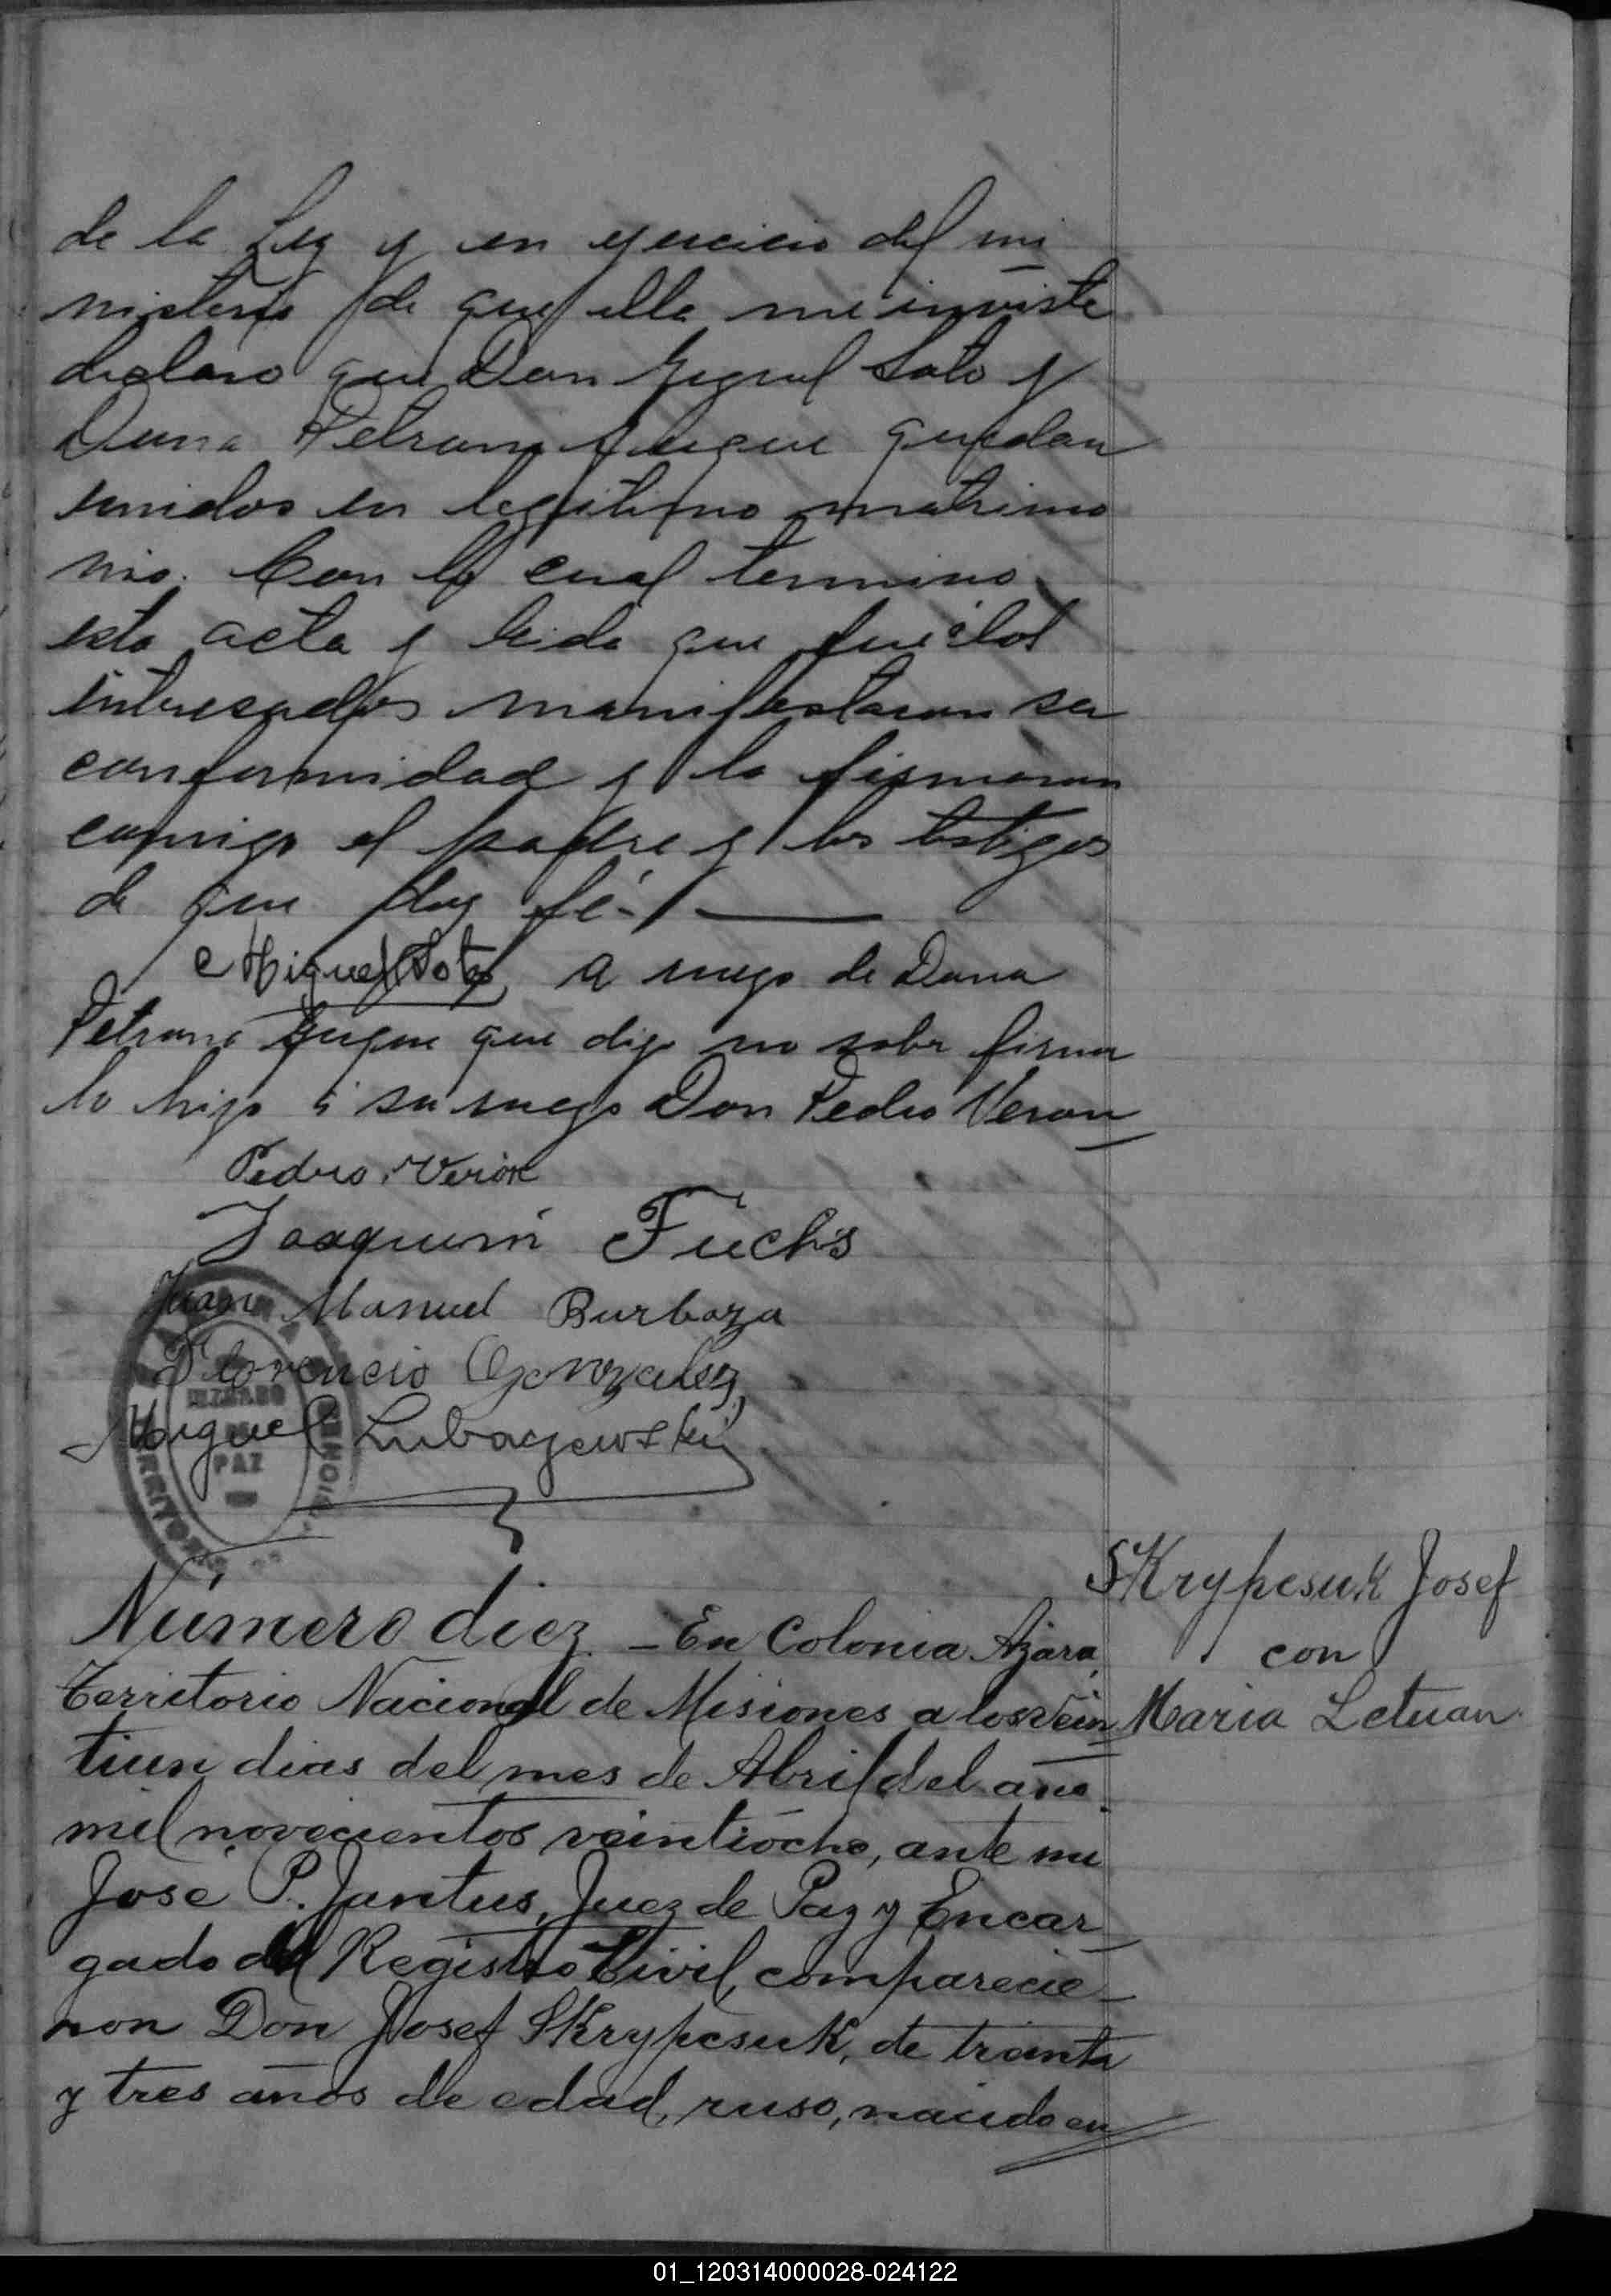 de la Ley y en ejercicio del mi
nisterio de que ella me inviste
declaro que Don Miguel Soto y
Dona Petrona quedan
unidos en legitimo matrimo
nio. Con lo cual termino
esta acta y leida que fue á los
interesados manifestaron su
conformidad y la firmaron
conmigo el padre y los testigos
de que doy fé.-
Miguel Soto A ruego de Dona
Petrona que dijo no saber firmar
lo hizo á su ruego Don Pedro Veron
Pedro Verón
Joaquin Fuchs
Juan Manuel Burboza
Florencio Gonzalez
Miguel Lubaczewski
JUZGADO
DE
PAZ
Número diez. - En Colonia Azara,
Territorio Nacional de Misiones a los vein
tiun dias del mes de Abril del año
mil novecientos veintiocho, ante mi
José P. Jantus, Juez de Paz y Encar
gado del Registro Civil, comparecie-
ron Don Josef Skrypcsuk, de treinta
y tres años de edad, ruso, nacido en
Skrypcsuk Josef
con
Maria Letuan.
01_120314000028-024122